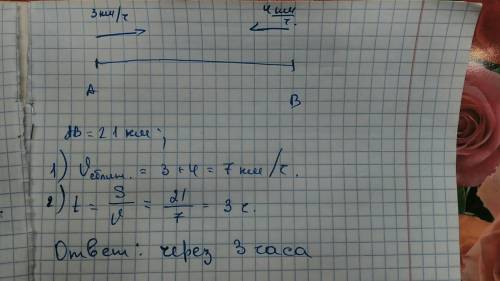 3 км/ч 4 км/ч.
A B
AB = 21 км;
1) Vсближ. = 3 + 4 = 7 км/ч.
2) t = S/V = 21/7 = 3 ч.
Ответ: через 3 часа